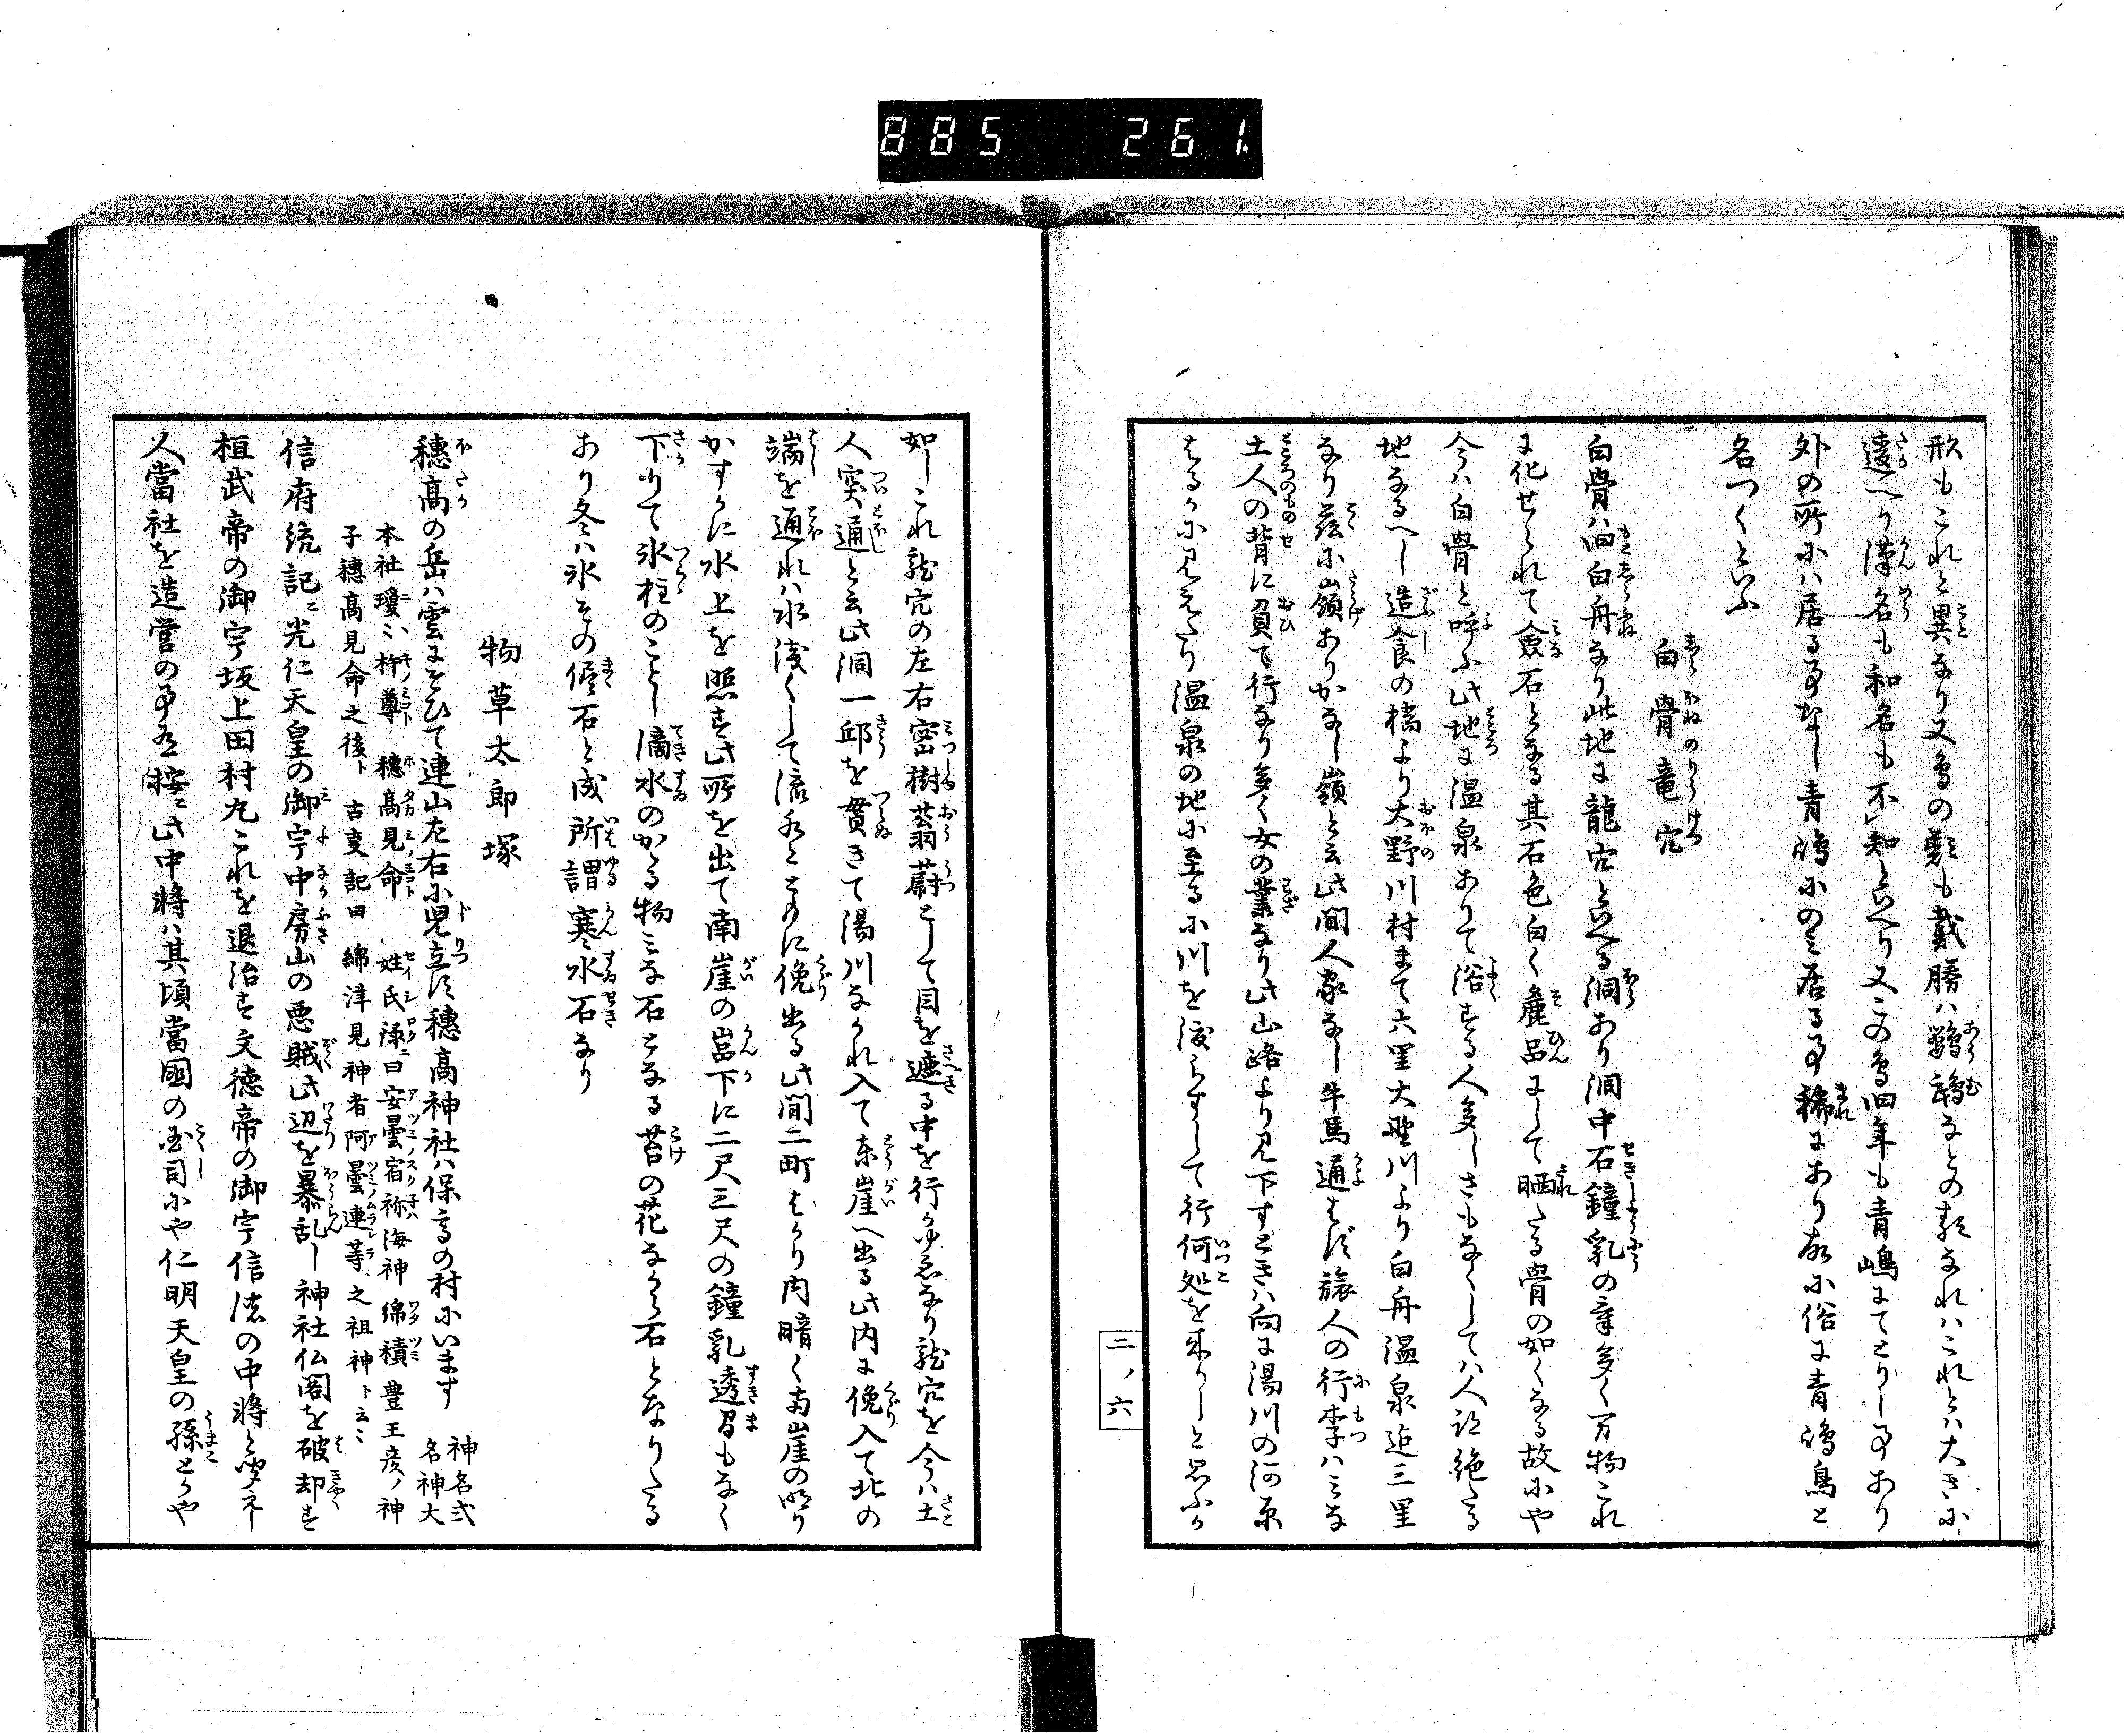 885 261.
形もこれと異なり又鳥の類も戴勝ハ鸚鵡なとの類なれハこれとハ大きに
違へり漢名も和名も不知といへり又この鳥旧年も青嶋にてとりし事あり
外の所にハ居る事なし青嶋にのみ居る事稀にあり故に俗に青嶋鳥と
名つくといふ
白骨竜穴
白骨ハ旧白舟なり此地に龍穴といへる洞あり洞中石鐘乳の音多く万物これ
に化せられて僉石となる其石色白く麁品にして晒たる骨の如くなる故にや
今ハ白骨と呼ふ此地に温泉ありて浴する人多しさもなくしてハ人跡絶たる
地なるへし造食の橋より大野川村まて六里大野川より白舟温泉迄三里
なり茲に嶺ありかなし嶺と云此間人家なし牛馬通はす旅人の行李ハみな
土人の背に負て行なり多く女の業なり此山路より見下すときハ向に湯川の河原
はるかに見えたり温泉の地に至るに川を渡らすして行何処を来りしと思ふか
二ノ六
如しこれ龍穴の左右密樹蓊蔚として目を遮る中を行かゆゑなり龍穴を今ハ土
人突通と云此洞一邱を貫きて湯川なかれ入て東崖へ出る此内に俛入て北の
端を通れハ水浅くして流水とともに俛出る此間二町はかり内暗く両崖の明り
かすかに水上を照す此所を出て南崖の嵓下に二尺三尺の鐘乳透間もなく
下りて氷柱のことし滴水のかかる物みな石となる苔の花なから石となりたる
あり冬ハ氷その儘石と成所謂寒水石なり
物草太郎塚
穗高の岳ハ雲にそひて連山左右に児立す穂高神社ハ保高の村にいます 神名式名神大
本社瓊々杵尊 穗高見命 姓氏録曰安曇宿祢海神綿積豊玉彦ノ神
子穗高見命之後ト 古事記曰綿津見神者阿曇連等之祖神ト云々
信府統記ニ光仁天皇の御宇中房山の悪賊此辺を暴乱し神社仏閣を破却す
桓武帝の御宇坂上田村丸これを退治す文徳帝の御宇信濃の中将と
人當社を造営の事有按ニ此中将ハ其頃當國の国司にや仁明天皇の孫とかや